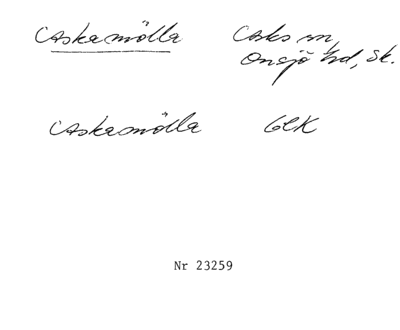 Askamölla Asks sn,
Onsjö hd, Sk.
Askamölla GEK
Nr 23259